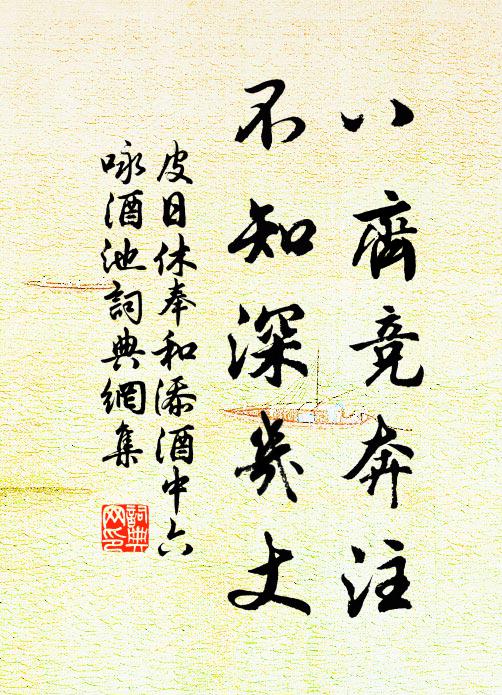 八齊競奔注
不知深幾丈
皮日休奉和添酒中六
咏酒池詞典網集
詞典
网印